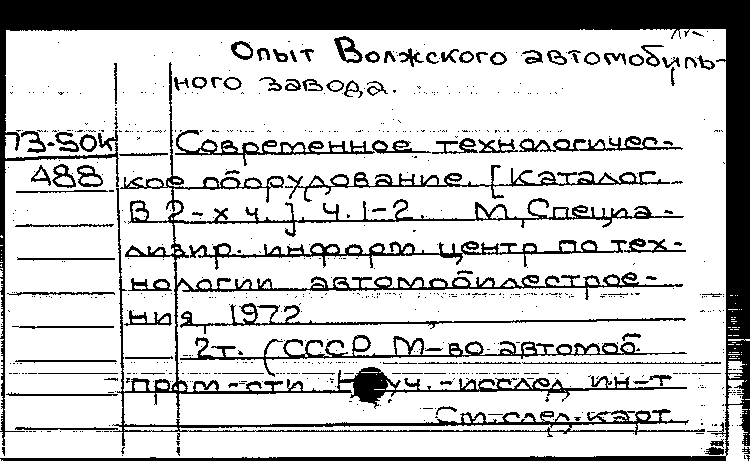 Опыт Волжского автомобиль-
ного завода.
73-50к
488
Современное технологичес-
кое оборудование. [Каталог.
В 2-х ч.]. Ч.1-2. М., Специа-
лизир. информ. центр по тех-
нологии автомобилестрое-
ния, 1972.
2т. (СССР. М-во автомоб.
пром-сти. -исслед. ин-т
См.след.карт.